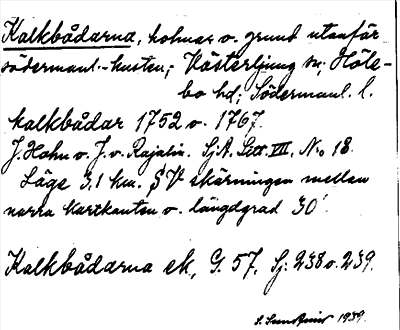 Kalkbådarna, holmar o. grund utanför
södermanl.-kusten; Västerljung sn; Höle-
bo hd; Södermanl. l.
Kalkbådar 1752 o. 1767.
J. Hahn o. J. v. Rajalin. SjA. Litt. VII. No 18.
Läge 3,1 km. SV skärningen mellan
norra kartkanten o. längdgrad 30'.
Kalkbådarna ek, G. 57, Sj: 238 o. 239.
1939.